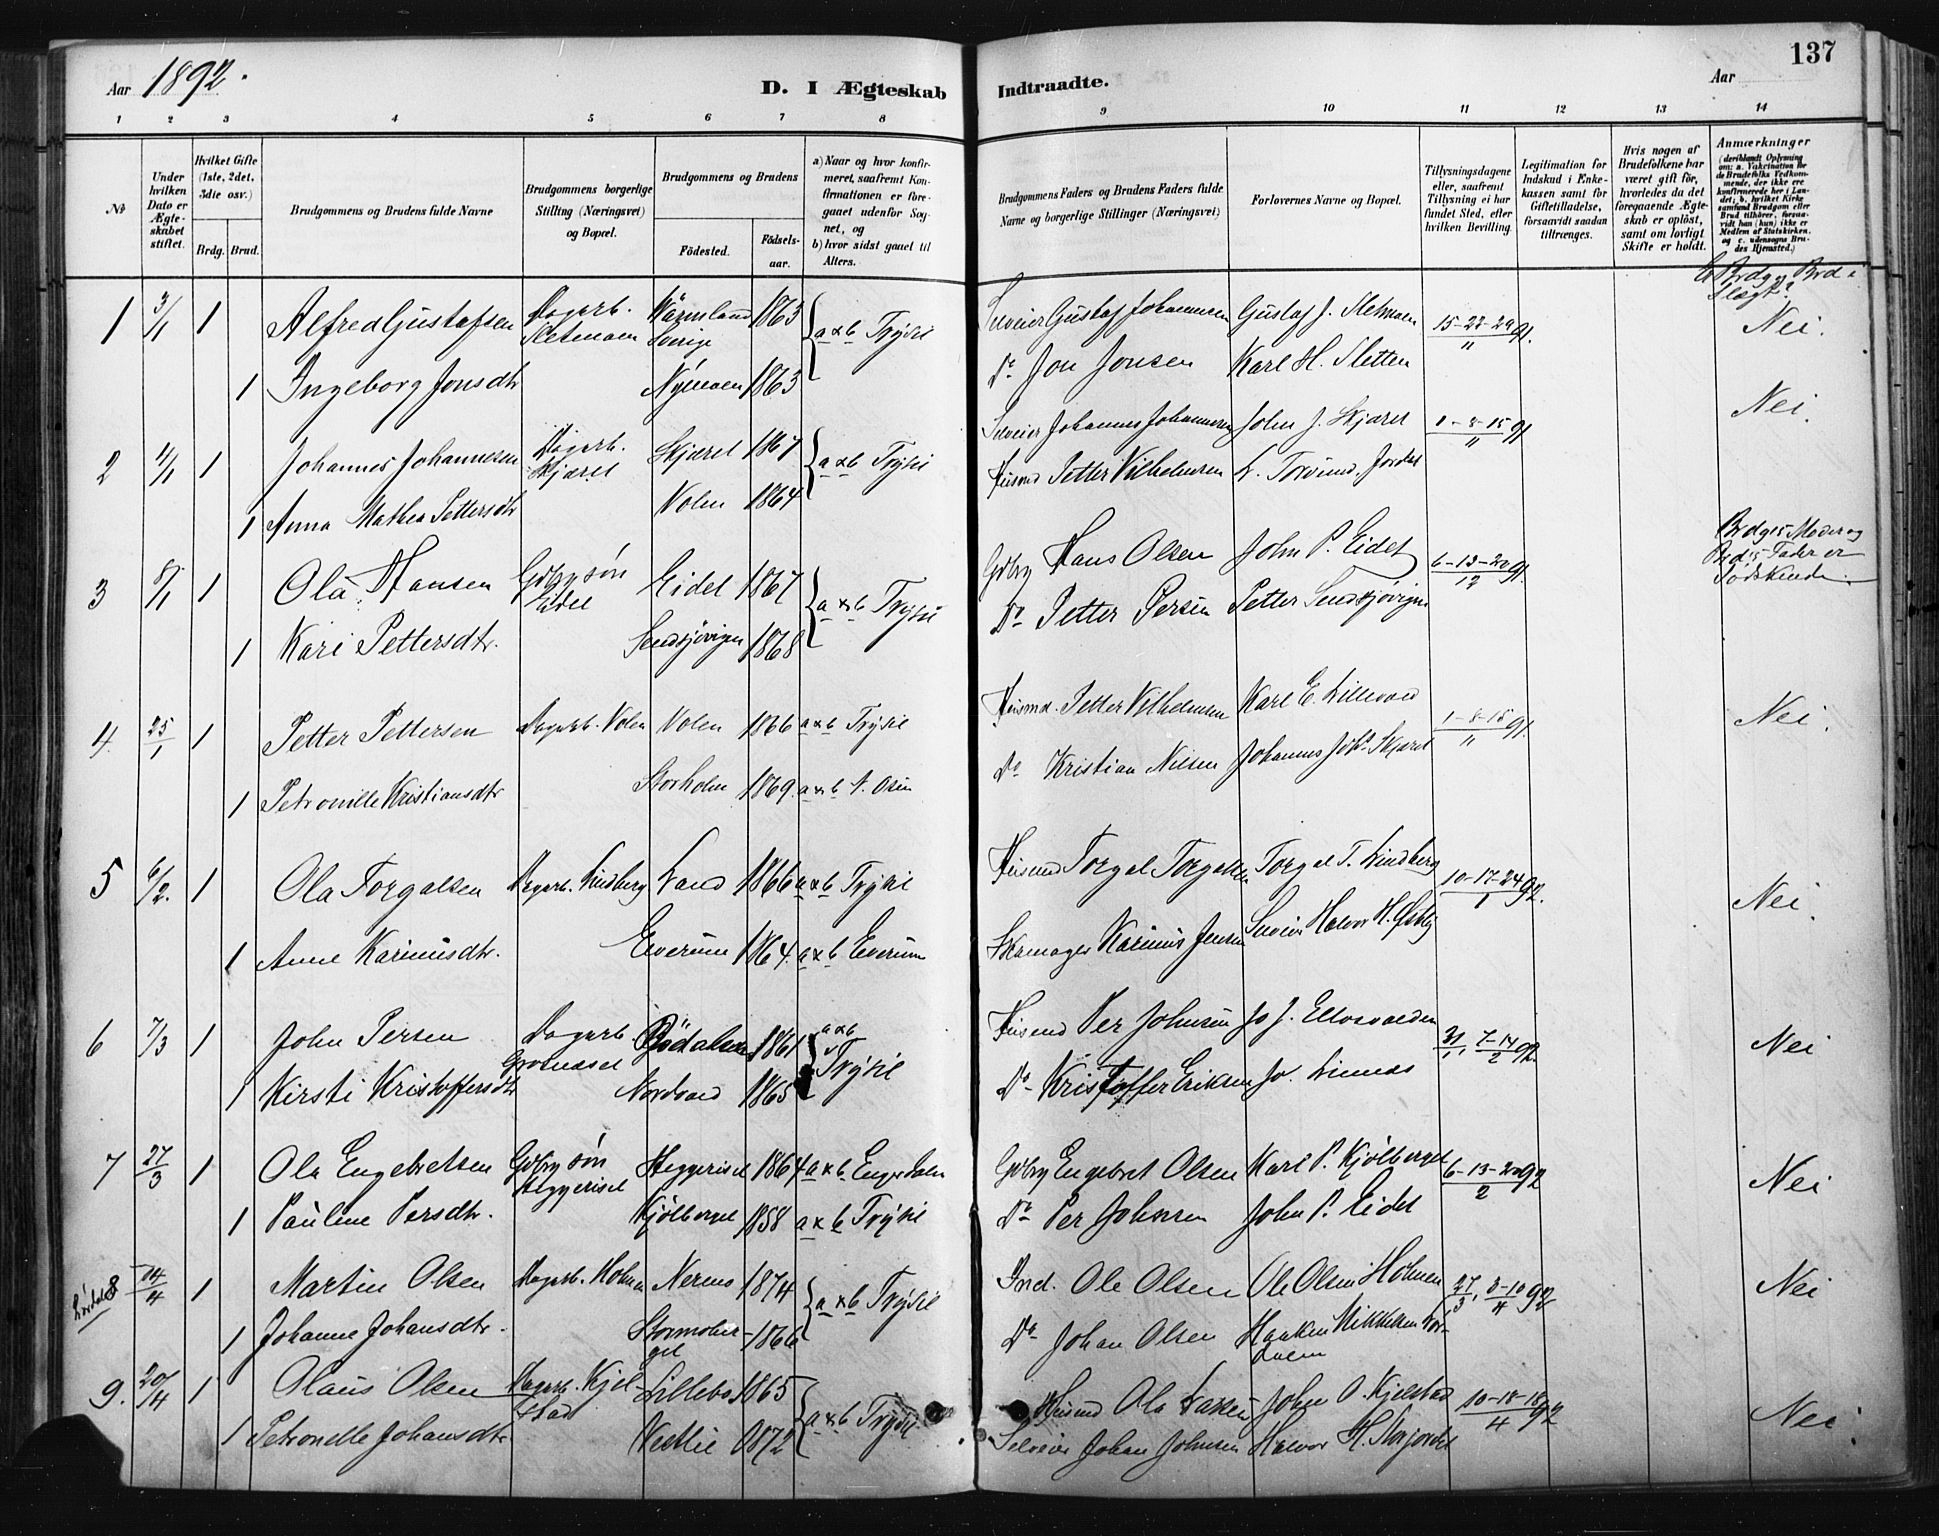 Aar 1892.
D. I Ægteskab Indtraadte.
Aar
137
1 2 3 4 5 6 7 8 9 10 11 12 13 14
No
Under hvilken Dato er Ægteskabet stiftet.
Hvilket Gifte (1ste, 2det, 3die osv.)
Brdg. Brud.
Brudgommens og Brudens fulde Navne
Brudgommens borgerlige Stilling (Næringsvei) og Bopæl.
Brudgommens og Brudens
Födested. Födselsaar.
a) Naar og hvor konfirmeret, saafremt Konfirmationen er foregaaet udenfor Sognet, og
b) hvor sidst gaaet til Alters.
Brudgommens Faders og Brudens Faders fulde Navne og borgerlige Stillinger (Næringsvei)
Forlovernes Navne og Bopæl.
Tillysningsdagene eller, saafremt Tillysning ei har fundet Sted, efter hvilken Bevilling.
Legitimation for Indskud i Enkekassen samt for Giftetilladelse, forsaavidt saadan tiltrænges.
Hvis nogen af Brudefolkene har været gift før, hvorledes da det foregaaende Ægteskab er opløst, samt om lovligt Skifte er holdt.
Anmærkninger
Er Brdg og Brd i Slægt?
1 3/1 1 Alfred Gustafsen Dagarb. Sletmoen Wärmland Sverige 1863 a & b Trysil Selveier Gustaf Johannesen Gustaf J. Sletmoen 15-22-29/11 91. Nei.
1 Ingeborg Jonsdtr Nymoen 1863 Do Jon Jonsen Karl H. Sletten
2 4/1 1 Johannes Johannesen Dagarb. Skjæret Skjæret 1867 a & b Trysil Selveier Johannes Johannesen John J. Skjæret 1-8-15/11 91 Nei.
1 Anna Mathea Pettersdtr Volen 1864 Husmd Petter Vilhelmsen L. Torsund. Jordet
3 8/1 1 Ola Hansen Gdbr. søn Eidet Eidet 1867 a & b Trysil Gdbr Hans Olsen John P. Eidet 6-13-20/12 91. Brdg's Moder og Brd's Fader er Sødskende
1 Kari Pettersdtr. Sendsjøvigen 1868 Do Petter Persen Petter Sendsjøvigen
4. 25/1 1 Petter Pettersen Dagarb. Volen Volen 1866 a & b Trysil Husmd. Petter Vilhelmsen Karl E. Lillevold 1-8-15/11 91. Nei.
1 Petronille Kristiansdtr Storholm 1869. a & b N. Osen Do Kristian Nilsen Johannes Johs Skjæret
5 6/2. 1 Ola Torgalsen Dagarb. Lindberg Land 1866 a & b Trysil Husmd Torgal Torgalsen Torgal T. Lindberg 10-17-24/1 92. Nei.
1 Anne Karinusdtr. Elverum 1864. a & b Elverum Skomager Karinus Jensen Selveier Halvor H. Østby
6 7/3 1 John Persen Dagarb. Grotnæset Bödalsen 1861 a & b Trysil Husmd Per Johnsen Jo J. Ellosvolden 31/1, 7-14/2 92. Nei
1 Kirsti Kristoffersdtr Nordvold 1865 Do Kristoffer Eriksen Jo. Linnes
7 27/3 1 Ola Engebretsen Gdbr søn Heggeriset Heggeriset 1864 a & b Engerdalen Gdbr Engebret Olsen Karl P. Kjølberget 6-13-20/2 92 Nei
1 Pauline Persdtr. Kjølberget 1858 a & b Trysil Do Per Johnsen John P. Eidet
8 14/4 1 Martin Olsen Dagarb. Holmen Neraas 1874 a & b Trysil Ind. Ole Olsen Ole Olsen Holmen 27/3, 3-10/4 92 Nei
1 Johanne Johansdtr. Stormoberget 1866 Do Johan Olsen Haaken Mikkelsen Lørdalen
9. 20/4 1 Olaus Olsen Dagarb. Kjelstad Lillebo 1865 a & b Trysil Husmd Ola Larsen John O. Kjelstad 10-18-18/4 92 Nei
1 Petronelle Johansdtr. Vestlie 1872 Selveier Johan Johnsen Halvor H. Storjordet